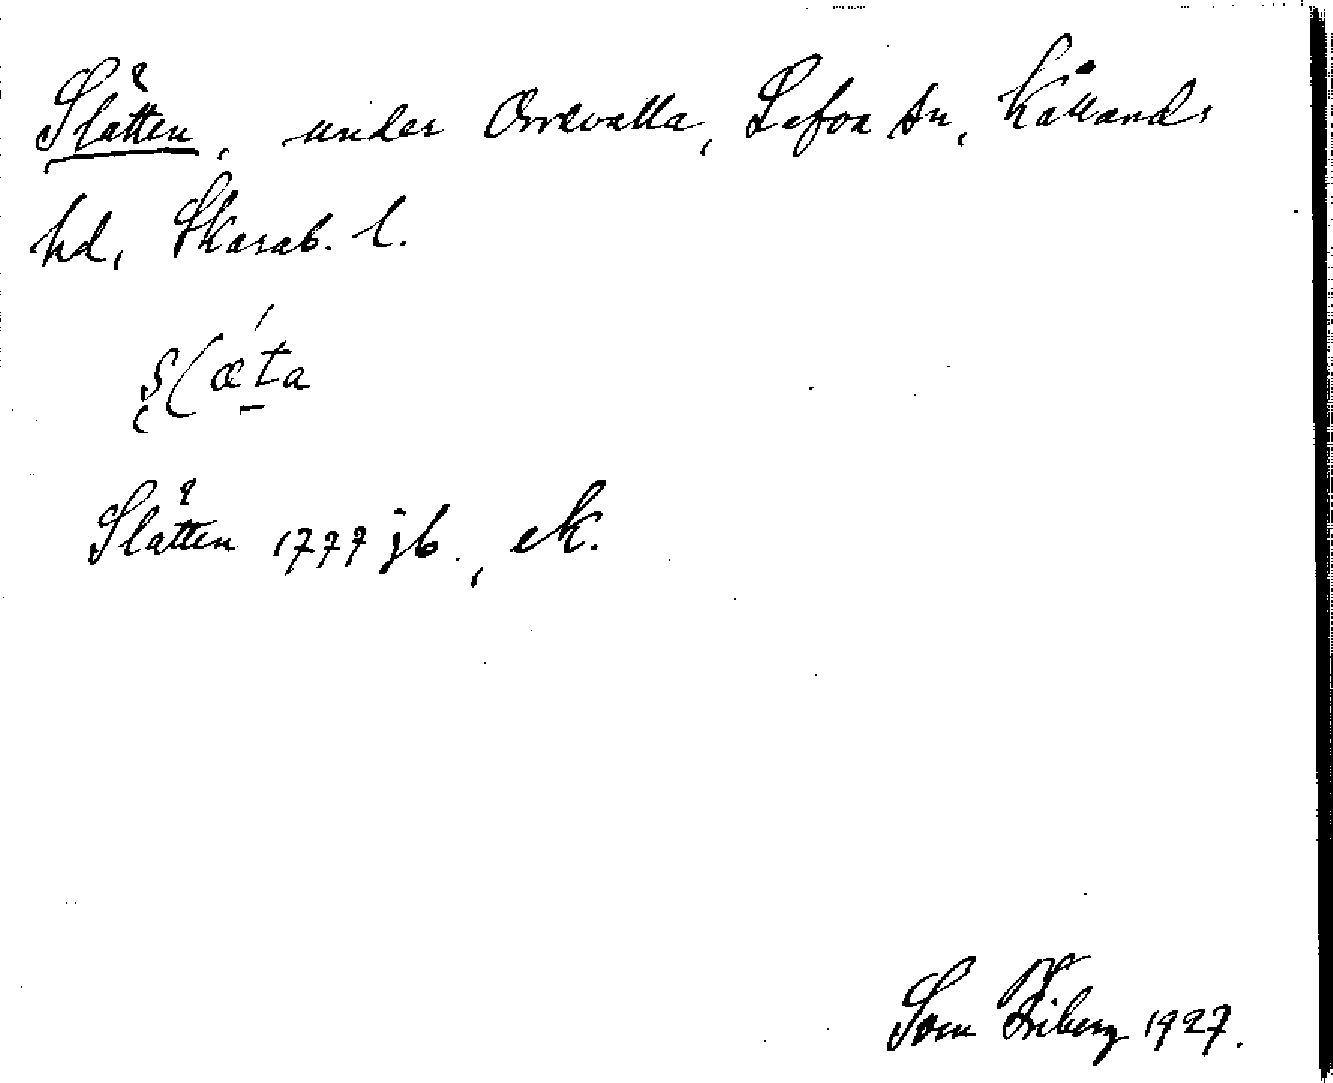 Slåtten, under Orrevalla, Lefoa sn, Kållands
hd, Skarab. l.
Slåtten 1777 jb., ek.
Sven Friberg 1927.